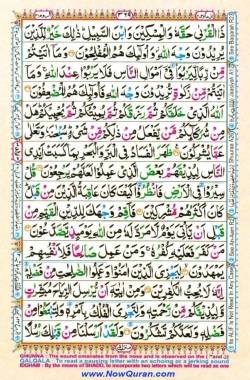 ذَا الْقُرْبٰى حَقَّهٗ وَالْمِسْكِيْنَ وَابْنَ السَّبِيْلِ ذٰلِكَ خَيْرٌ لِّلَّذِيْنَ
يُرِيْدُوْنَ وَجْهَ اللّٰهِ وَاُولٰٓئِكَ هُمُ الْمُفْلِحُوْنَ وَمَآ اٰتَيْتُمْ
مِّنْ رِّبًا لِّيَرْبُوَا۟ فِيْٓ اَمْوَالِ النَّاسِ فَلَا يَرْبُوْا عِنْدَ اللّٰهِ وَمَآ
اٰتَيْتُمْ مِّنْ زَكٰوةٍ تُرِيْدُوْنَ وَجْهَ اللّٰهِ فَاُولٰٓئِكَ هُمُ الْمُضْعِفُوْنَ
اَللّٰهُ الَّذِيْ خَلَقَكُمْ ثُمَّ رَزَقَكُمْ ثُمَّ يُمِيْتُكُمْ ثُمَّ يُحْيِيْكُمْ هَلْ
مِنْ شُرَكَآئِكُمْ مَّنْ يَّفْعَلُ مِنْ ذٰلِكُمْ مِّنْ شَيْءٍ سُبْحٰنَهٗ وَتَعٰلٰى
عَمَّا يُشْرِكُوْنَ ظَهَرَ الْفَسَادُ فِي الْبَرِّ وَالْبَحْرِ بِمَا كَسَبَتْ اَيْدِي
النَّاسِ لِيُذِيْقَهُمْ بَعْضَ الَّذِيْ عَمِلُوْا لَعَلَّهُمْ يَرْجِعُوْنَ قُلْ
سِيْرُوْا فِي الْاَرْضِ فَانْظُرُوْا كَيْفَ كَانَ عَاقِبَةُ الَّذِيْنَ مِنْ قَبْلُ
كَانَ اَكْثَرُهُمْ مُّشْرِكِيْنَ فَاَقِمْ وَجْهَكَ لِلدِّيْنِ الْقَيِّمِ مِنْ
قَبْلِ اَنْ يَّاْتِيَ يَوْمٌ لَّا مَرَدَّ لَهٗ مِنَ اللّٰهِ يَوْمَئِذٍ يَّصَّدَّعُوْنَ
مَنْ كَفَرَ فَعَلَيْهِ كُفْرُهٗ وَمَنْ عَمِلَ صَالِحًا فَلِاَنْفُسِهِمْ
يَمْهَدُوْنَ لِيَجْزِيَ الَّذِيْنَ اٰمَنُوْا وَعَمِلُوا الصّٰلِحٰتِ مِنْ فَضْلِهٖ
اِنَّهٗ لَا يُحِبُّ الْكٰفِرِيْنَ وَمِنْ اٰيٰتِهٖٓ اَنْ يُّرْسِلَ الرِّيَاحَ مُبَشِّرٰتٍ
وَّلِيُذِيْقَكُمْ مِّنْ رَّحْمَتِهٖ وَلِتَجْرِيَ الْفُلْكُ بِاَمْرِهٖ وَلِتَبْتَغُوْا مِنْ
فَضْلِهٖ وَلَعَلَّكُمْ تَشْكُرُوْنَ وَلَقَدْ اَرْسَلْنَا مِنْ قَبْلِكَ رُسُلًا
GHUNNA : The sound emanates from the nose and is observed on the
QALQALA : To read a pausing letter with an echoing or a jerking sound
IDGHAM : By the means of SHADD, to incorporate two letters which will be read as one
www.NowQuran.com